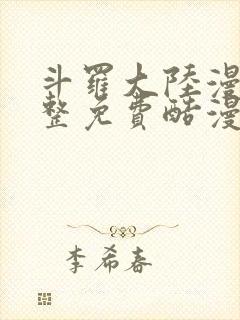 斗羅大陸漫
整免費酷漫
李希春